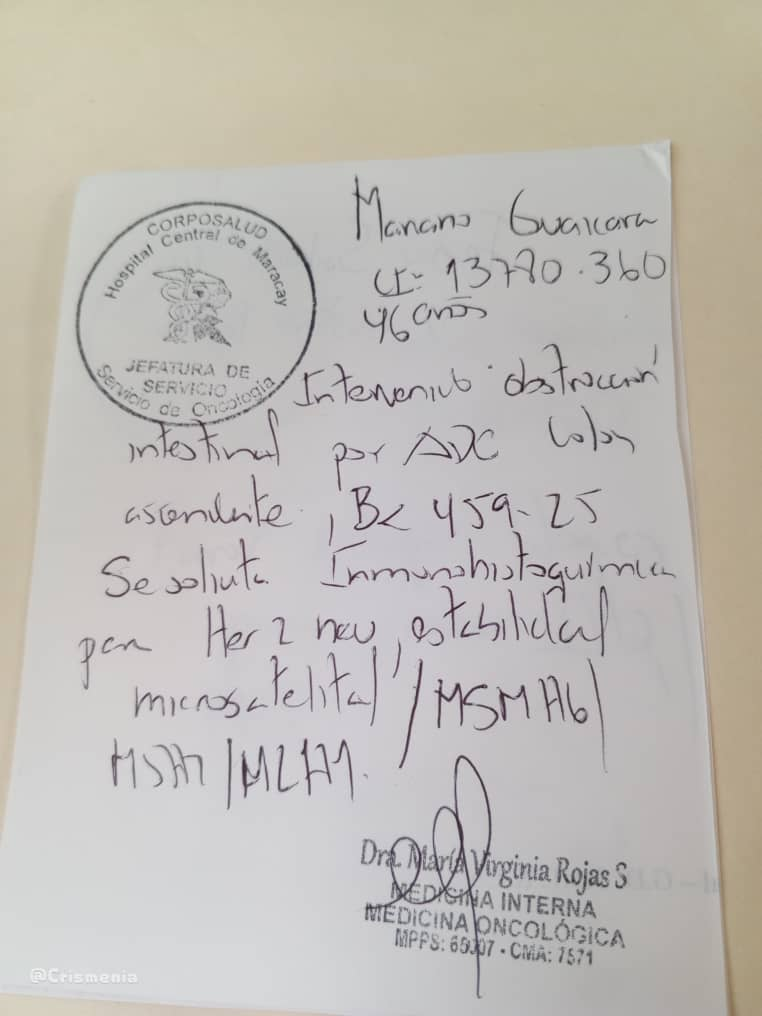 CORPOSALUD
Hospital Central de Maracay
JEFATURA DE
SERVICIO
Servicio de Oncología
Mariano Guaicara
CI- 13780.360
46 años
obstrucción
intestinal por ADC Colon
ascendente, B< 459-25
Se solicita Inmunohistoquímica
para Her 2 neu, estabilidad
microsatelital /MSMH6/
/MLH1.
Dra. María Virginia Rojas S
MEDICINA INTERNA
MEDICINA ONCOLÓGICA
MPPS: - CMA: 7571
@Crismenia